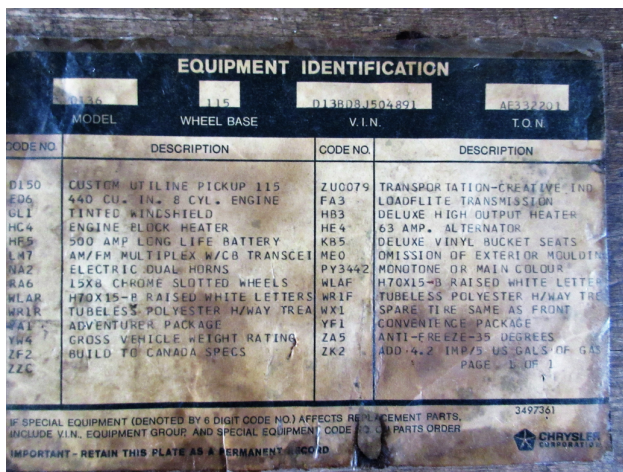 EQUIPMENT IDENTIFICATION
D136 115 D13BD8J504891 AE332201
MODEL WHEEL BASE V.I.N. T.O.N.
CODE NO. DESCRIPTION CODE NO. DESCRIPTION
D150 CUSTOM UTILINE PICKUP 115 ZU0079 TRANSPORTATION-CREATIVE IND
ED6 440 CU. IN. 8 CYL. ENGINE FA3 LOADFLITE TRANSMISSION
GL1 TINTED WINDSHIELD HB3 DELUXE HIGH OUTPUT HEATER
HC4 ENGINE BLOCK HEATER HE4 63 AMP. ALTERNATOR
HF5 500 AMP LONG LIFE BATTERY KB5 DELUXE VINYL BUCKET SEATS
LM7 AM/FM MULTIPLEX W/CB TRANSCEI ME0 OMISSION OF EXTERIOR MOULDIN
NA2 ELECTRIC DUAL HORNS PY3442 MONOTONE OR MAIN COLOUR
RA6 15X8 CHROME SLOTTED WHEELS WLAF H70X15-B RAISED WHITE LETTER
WLAR H70X15-B RAISED WHITE LETTERS WR1F TUBELESS POLYESTER H/WAY TRE
WR1R TUBELESS POLYESTER H/WAY TREA WX1 SPARE TIRE SAME AS FRONT
YA1 ADVENTURER PACKAGE YF1 CONVENIENCE PACKAGE
YW4 GROSS VEHICLE WEIGHT RATING ZA5 ANTI-FREEZE-35 DEGREES
ZF2 BUILD TO CANADA SPECS ZK2 ADD 4.2 IMP/5 US GALS OF GAS
ZZC PAGE 1 OF 1
3497361
IF SPECIAL EQUIPMENT (DENOTED BY 6 DIGIT CODE NO.) AFFECTS REPLACEMENT PARTS,
INCLUDE V.I.N., EQUIPMENT GROUP, AND SPECIAL EQUIPMENT CODE NO. ON PARTS ORDER
IMPORTANT - RETAIN THIS PLATE AS A PERMANENT RECORD
CHRYSLER
CORPORATION